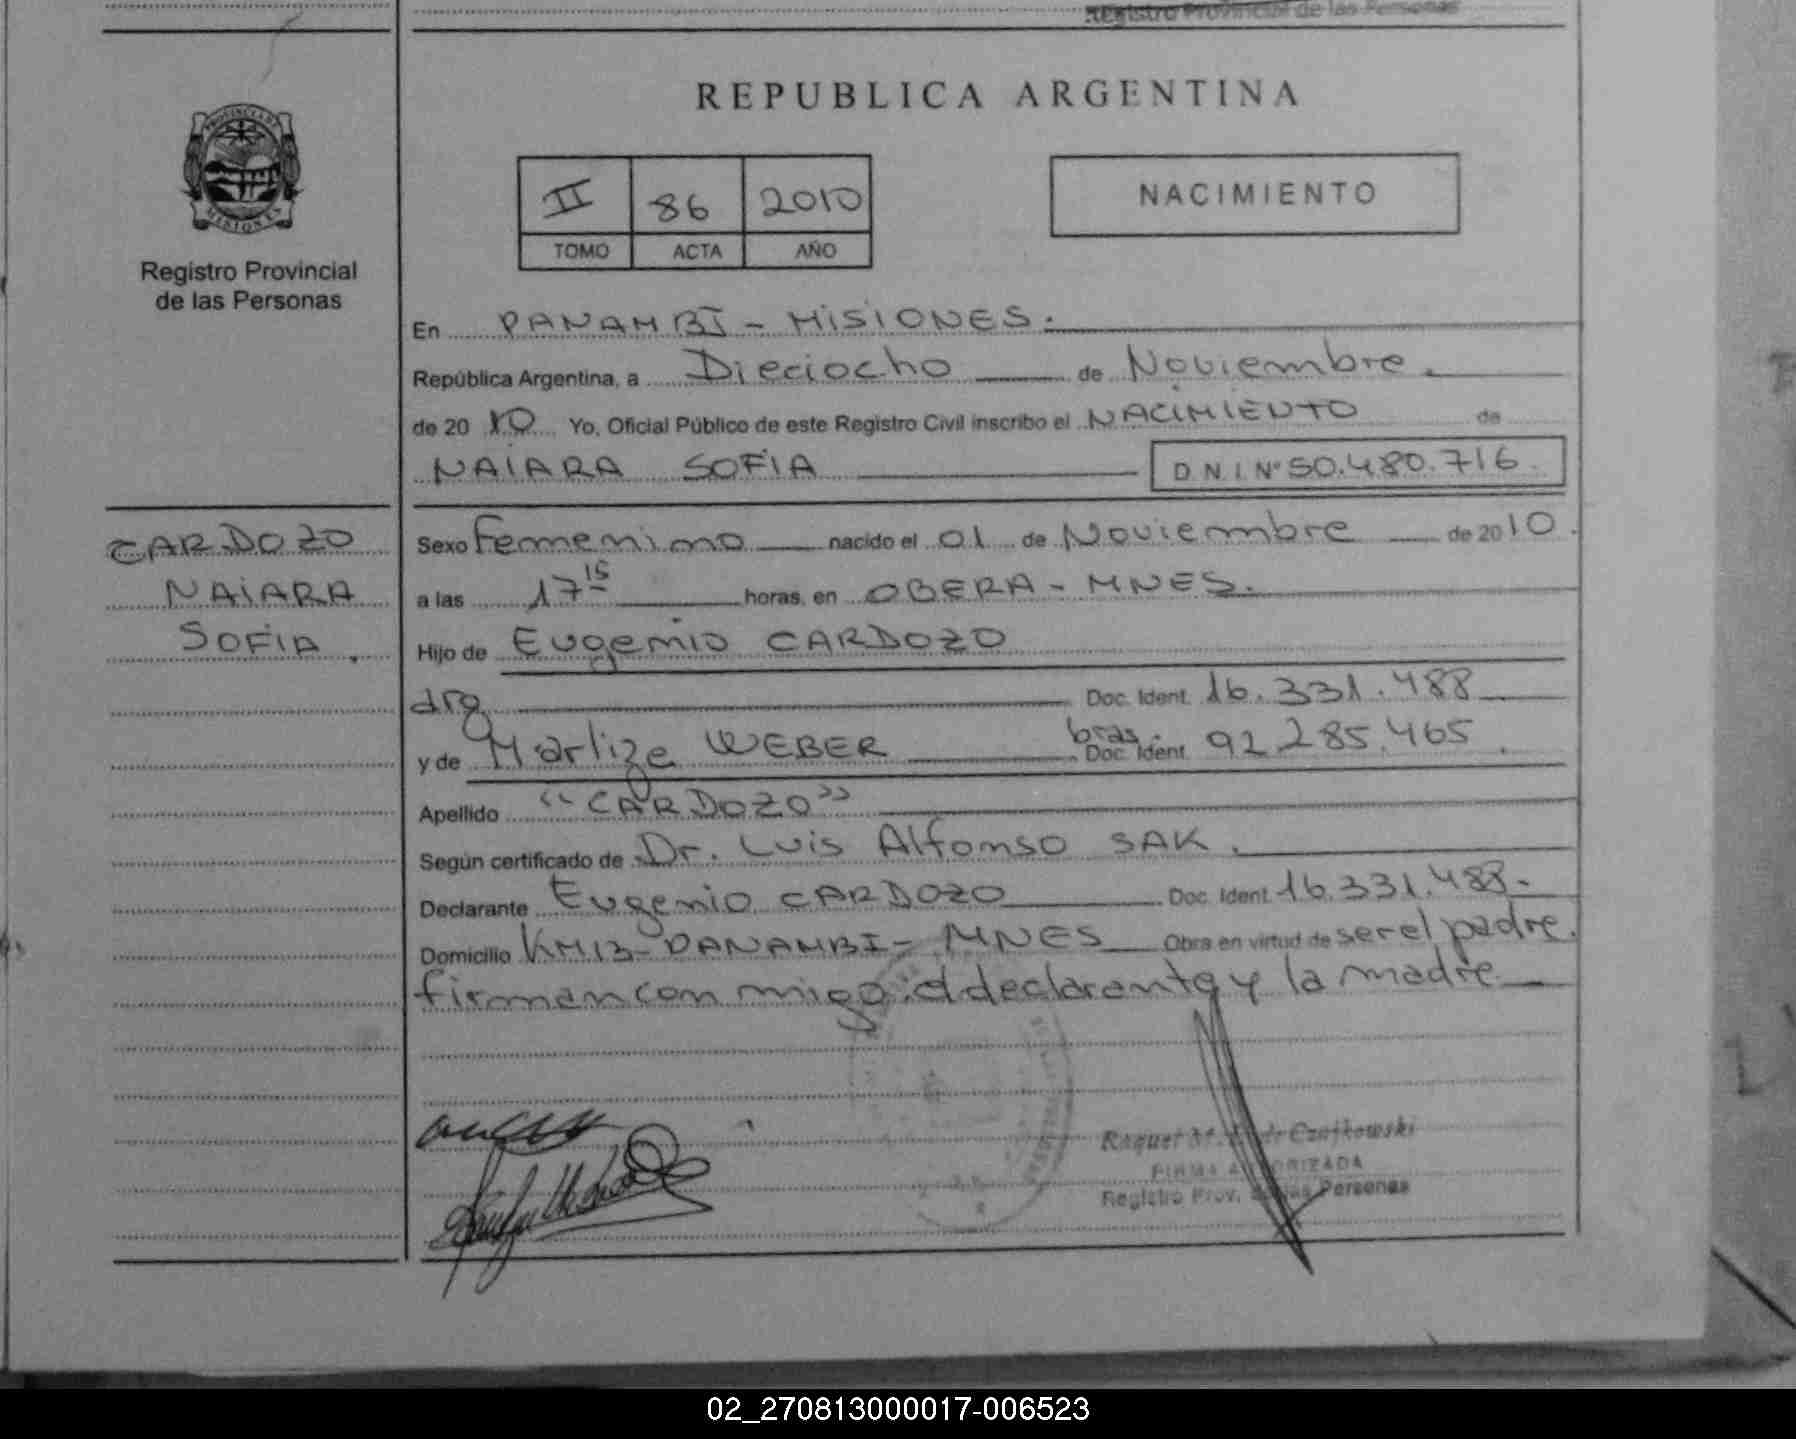 Registro Provincial de las Personas
REPUBLICA ARGENTINA
PROVINCIA DE
MISIONES
Registro Provincial
de las Personas
II 86 2010
TOMO ACTA AÑO
NACIMIENTO
En PANAMBI - MISIONES.
República Argentina, a Dieciocho de Noviembre.
de 20 10 Yo, Oficial Público de este Registro Civil inscribo el NACIMIENTO de
NAIARA SOFIA D.N.I. Nº 50.480.716.
CARDOZO
NAIARA
SOFIA.
Sexo Femenino nacido el 01 de Noviembre de 2010.
a las 17 15 horas, en OBERA - MNES.
Hijo de Eugenio CARDOZO
arg Doc. Ident. 16.331.488
y de Marlize WEBER bras. Doc. Ident. 92.285.465.
Apellido "CARDOZO"
Según certificado de Dr. Luis Alfonso SAK.
Declarante Eugenio CARDOZO Doc. Ident. 16.331.488.
Domicilio KM13 - PANAMBI - MNES Obra en virtud de ser el padre.
firman con migo: el declarante y la madre
Raquel M. Czajkowski
FIRMA AUTORIZADA
Registro Prov. de las Personas
02_270813000017-006523